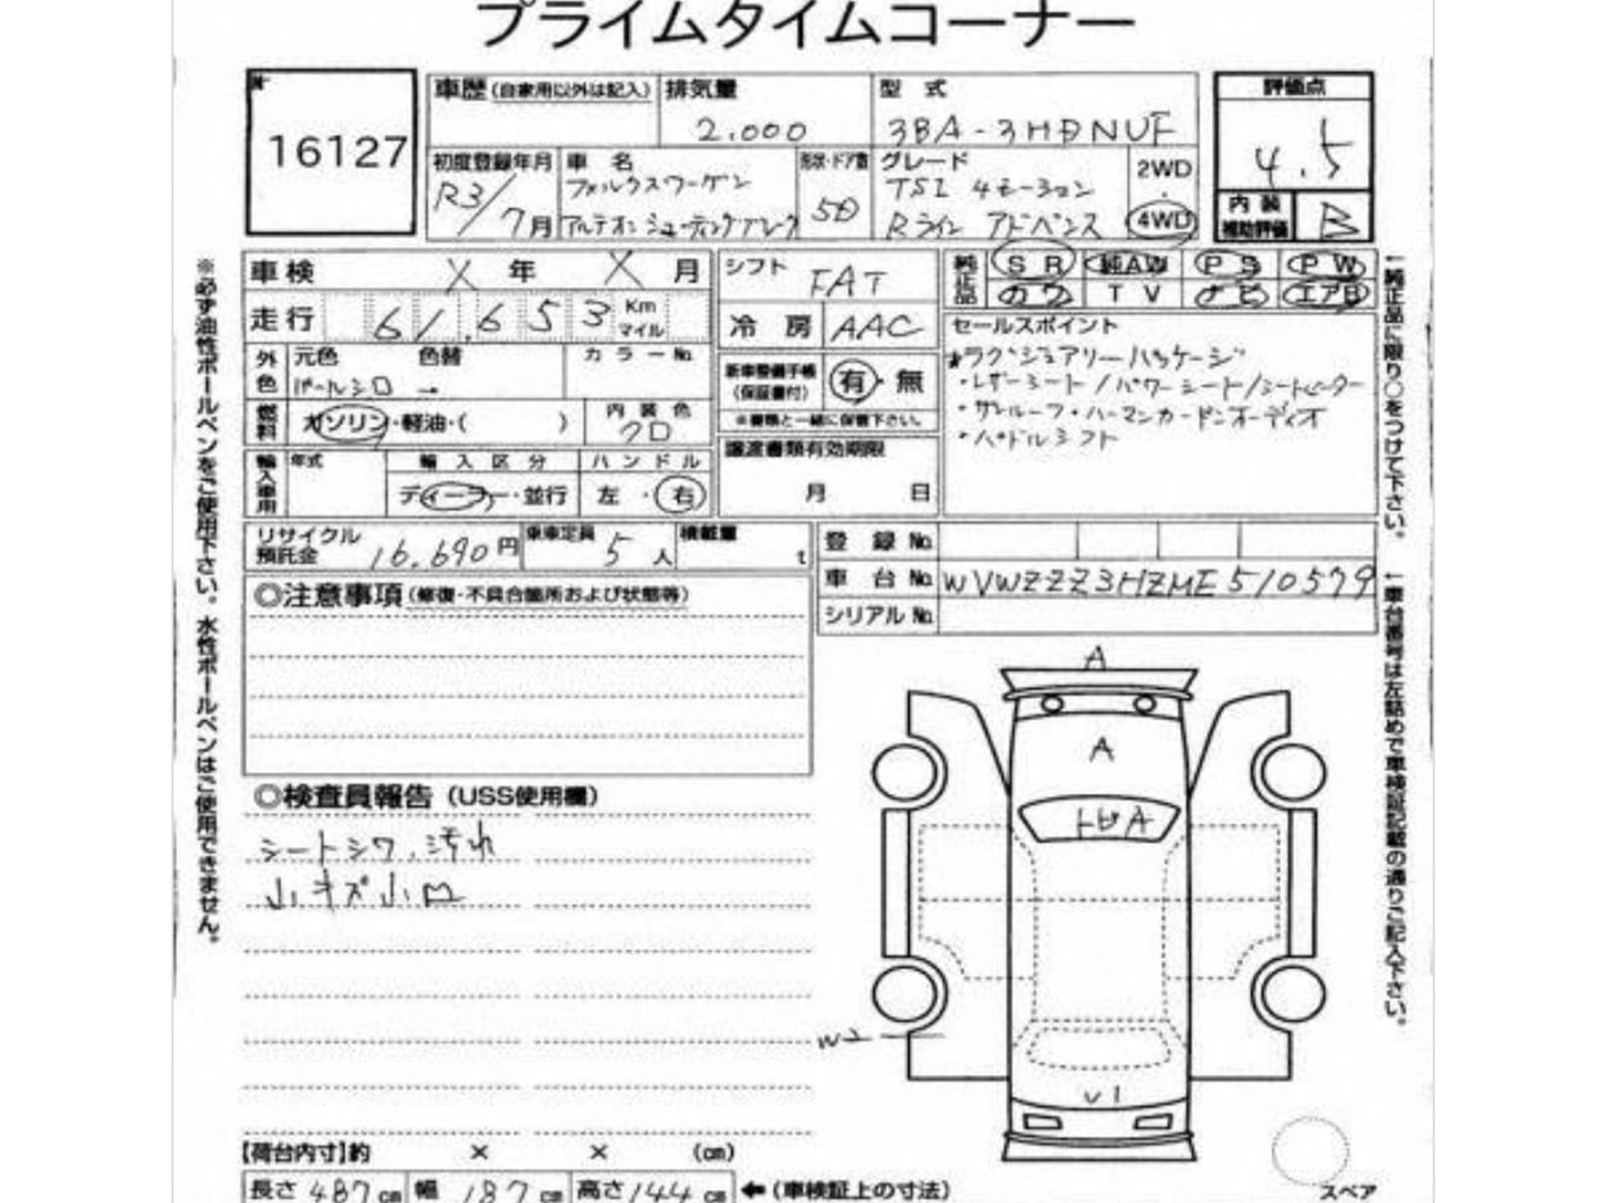 プライムタイムコーナー
16127
車歴(自家用以外は記入)
排気量
2.000
型 式
3BA-3HDNUF
評価点
4.5
初度登録年月
R3/7月
車 名
フォルクスワーゲン
アルテオンシューティングブレーク
形状・ドア数
5D
グレード
TSI 4モーション
Rライン アドバンス
2WD
・
4WD
内 装
補助評価
B
車検 X 年 X 月
走行 61.653 Km
マイル
シフト FAT
冷 房 AAC
純正品
SR 純AW PS PW
カワ TV ナビ エアB
セールスポイント
★ラグジュアリーパッケージ
・レザーシート/パワーシート/シートヒーター
・サンルーフ・ハーマンカードンオーディオ
・パドルシフト
外色
元色 色替
パールシロ →
カラーNo.
燃料
ガソリン・軽油・( )
内装色
クロ
新車整備手帳
(保証書付)
有・無
※書類と一緒に保管下さい。
輸入車用
年式
輸入区分
ディーラー・並行
ハンドル
左・右
譲渡書類有効期限
月 日
リサイクル
預託金 16.690円
乗車定員 5人
積載量 t
登 録 No.
車 台 No. WVWZZZ3HZME510579
シリアル No.
◎注意事項(修復・不具合箇所および状態等)
◎検査員報告(USS使用欄)
シートシワ、汚れ
小キズ小凹
A
A
トビA
W2
U1
【荷台内寸】約 × × (cm)
長さ 487 cm 幅 187 cm 高さ 144 cm ←(車検証上の寸法)
スペア
※必ず油性ボールペンをご使用下さい。水性ボールペンはご使用できません。
↑純正品に限り○をつけて下さい。
↑車台番号は左詰めで車検証記載の通りご記入下さい。